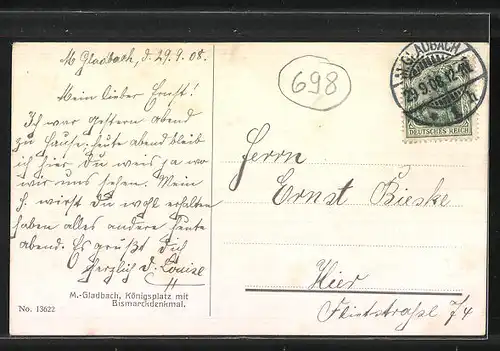 M. Gladbach, d. 29.9.08.
Mein lieber Ernst!
Ich war gestern abend
zu Hause, heute abend bleib
ich hier Du weis ja wo
wir uns sehen. Mein
wirst Du wohl erhalten
haben alles andere heute
abend. Es grüßt Dich
herzlich d. Louise
M.-Gladbach, Königsplatz mit
Bismarckdenkmal.
No. 13622
698
GLADBACH
29.9.08.12-
DEUTSCHES REICH
Herrn
Ernst Bieske
Hier
74